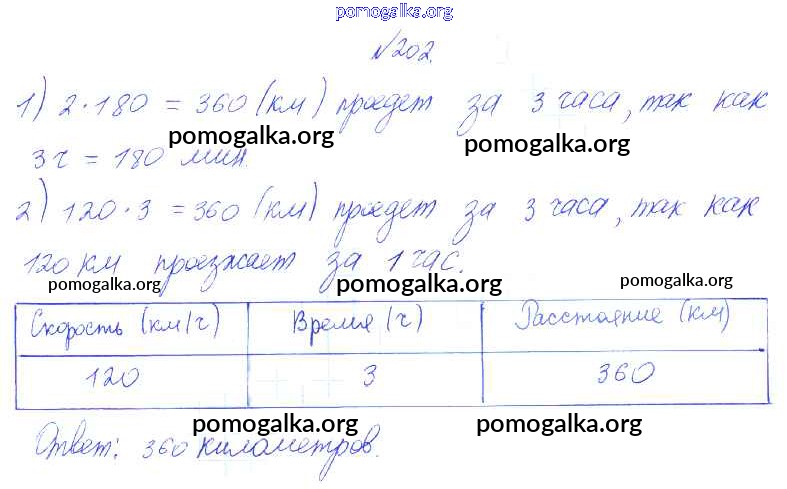 pomogalka.org
№202.
1) 2·180 = 360 (км) проедет за 3 часа, так как
pomogalka.org pomogalka.org
3 ч = 180 мин.
2) 120·3 = 360 (км) проедет за 3 часа, так как
120 км проезжает за 1 час.
pomogalka.org pomogalka.org pomogalka.org
Скорость (км/ч) Время (ч) Расстояние (км)
120 3 360
pomogalka.org pomogalka.org
Ответ: 360 километров.